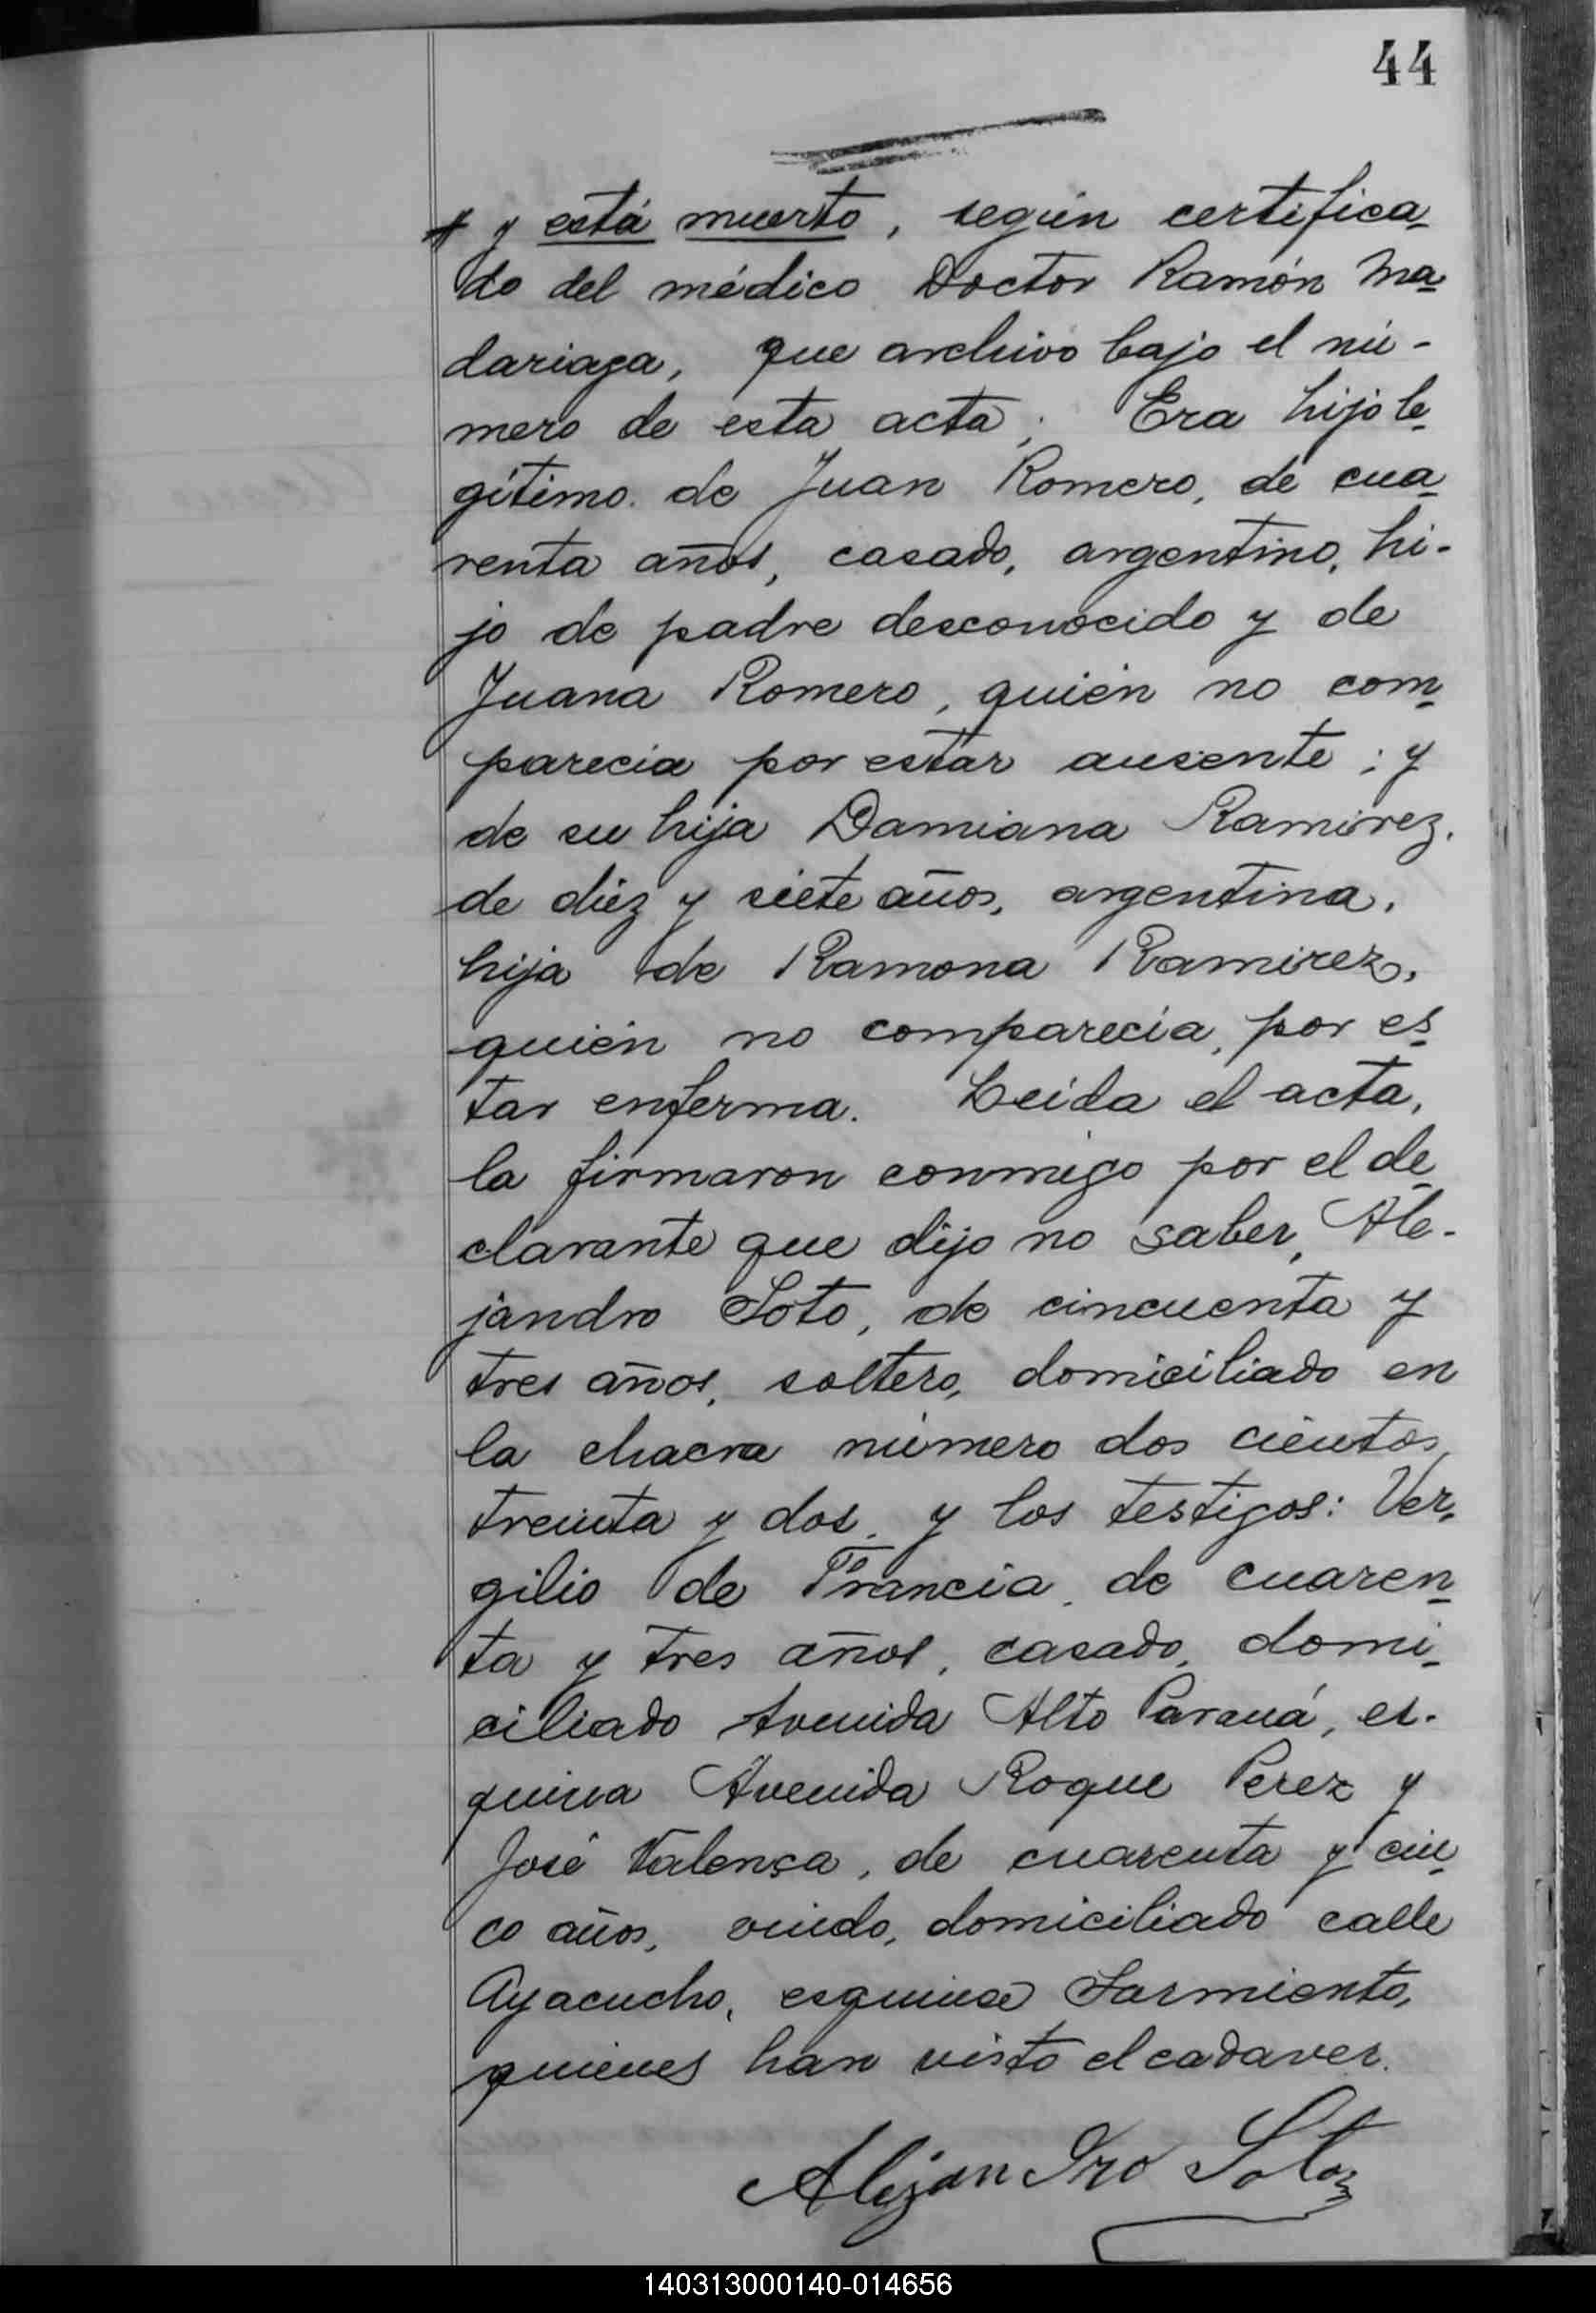 44
y está muerto, según certifica-
do del médico Doctor Ramón Ma-
dariaga, que archivo bajo el nú-
mero de esta acta; Era hijo le-
gítimo de Juan Romero, de cua-
renta años, casado, argentino, hi-
jo de padre desconocido y de
Juana Romero, quién no com-
parecia por estar ausente; y
de su hija Damiana Ramirez,
de diéz y siete años, argentina,
hija de Ramona Ramirez,
quién no comparecia, por es-
tar enferma. Leida el acta,
la firmaron conmigo por el de-
clarante que dijo no saber, Ale-
jandro Soto, de cincuenta y
tres años, soltero, domiciliado en
la chacra número dos cientos
treinta y dos, y los testigos: Ver-
gilio de Francia, de cuaren-
ta y tres años, casado, domi-
ciliado Avenida Alto Paraná, es-
quina Avenida Roque Perez y
José Valensa, de cuarenta y cin-
co años, viudo, domiciliado calle
Ayacucho, esquina Sarmiento,
quienes han visto el cadaver.
Alejandro Soto
140313000140-014656